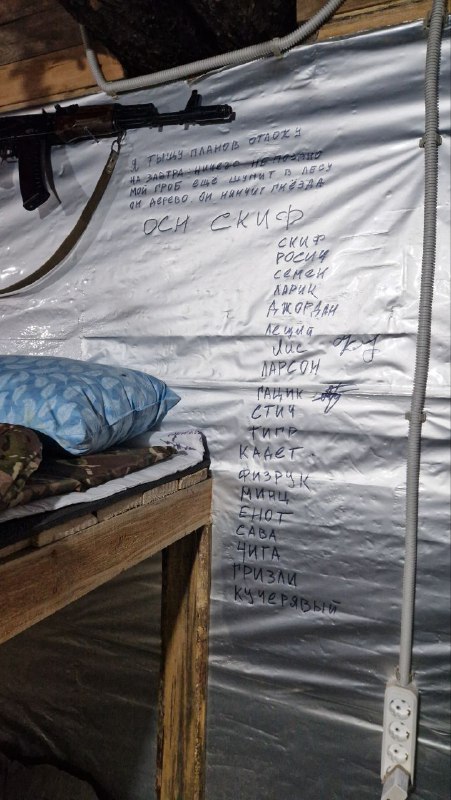 Я ТЫЩУ ПЛАНОВ ОТЛОЖУ
НА ЗАВТРА: НИЧЕГО НЕ ПОЗДНО
МОЙ ГРОБ ЕЩЕ ШУМИТ В ЛЕСУ
ОН ДЕРЕВО. ОН НЯНЧИТ ГНЁЗДА
ОСН СКИФ
СКИФ
РОСИЧ
СЕМЕН
ЛАРИК
ДЖОРДАН
ЛИС
ЛАРСОН
ГАЦИК
СТИЧ
ТИГР
КАДЕТ
ФИЗРУК
МИНЦ
ЕНОТ
САВА
ЧИГА
ГРИЗЛИ
КУЧЕРЯВЫЙ